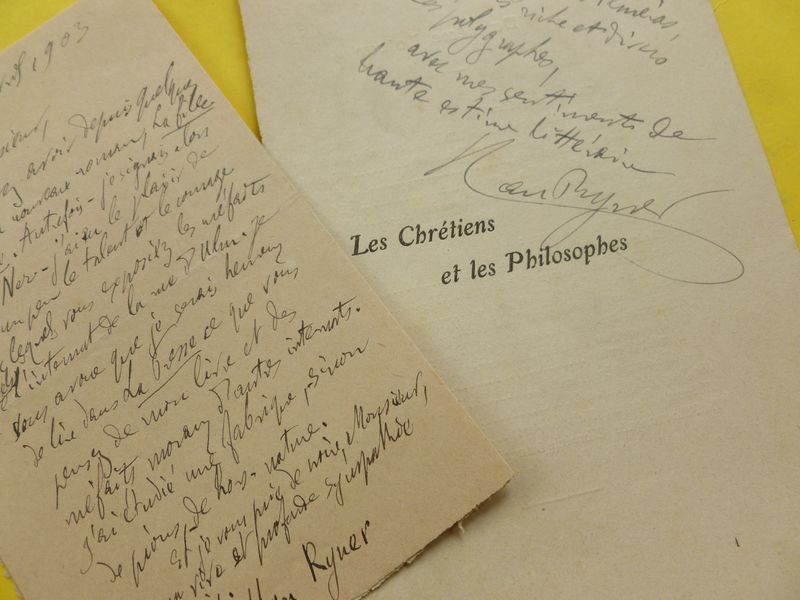 1903
avoir depuis quelque
nouveau roman, La fille
. Autrefois - je signais alors
Ner - j'ai eu le plaisir de
un peu le talent et le courage
lesquels vous exposiez les méfaits
l'internat de la rue d'Ulm. Je
vous avoue que je serais heureux
de lire dans La Presse ce que vous
pensez de mon livre et des
méfaits moraux d'autres internats.
J'ai étudié une fabrique, sinon
de pions, de hors-nature.
Et je vous prie de croire, Monsieur,
vive et profonde sympathie
Ryner
riche et
polygraphes,
avec mes sentiments de
haute estime littéraire
Han Ryner
Les Chrétiens
et les Philosophes